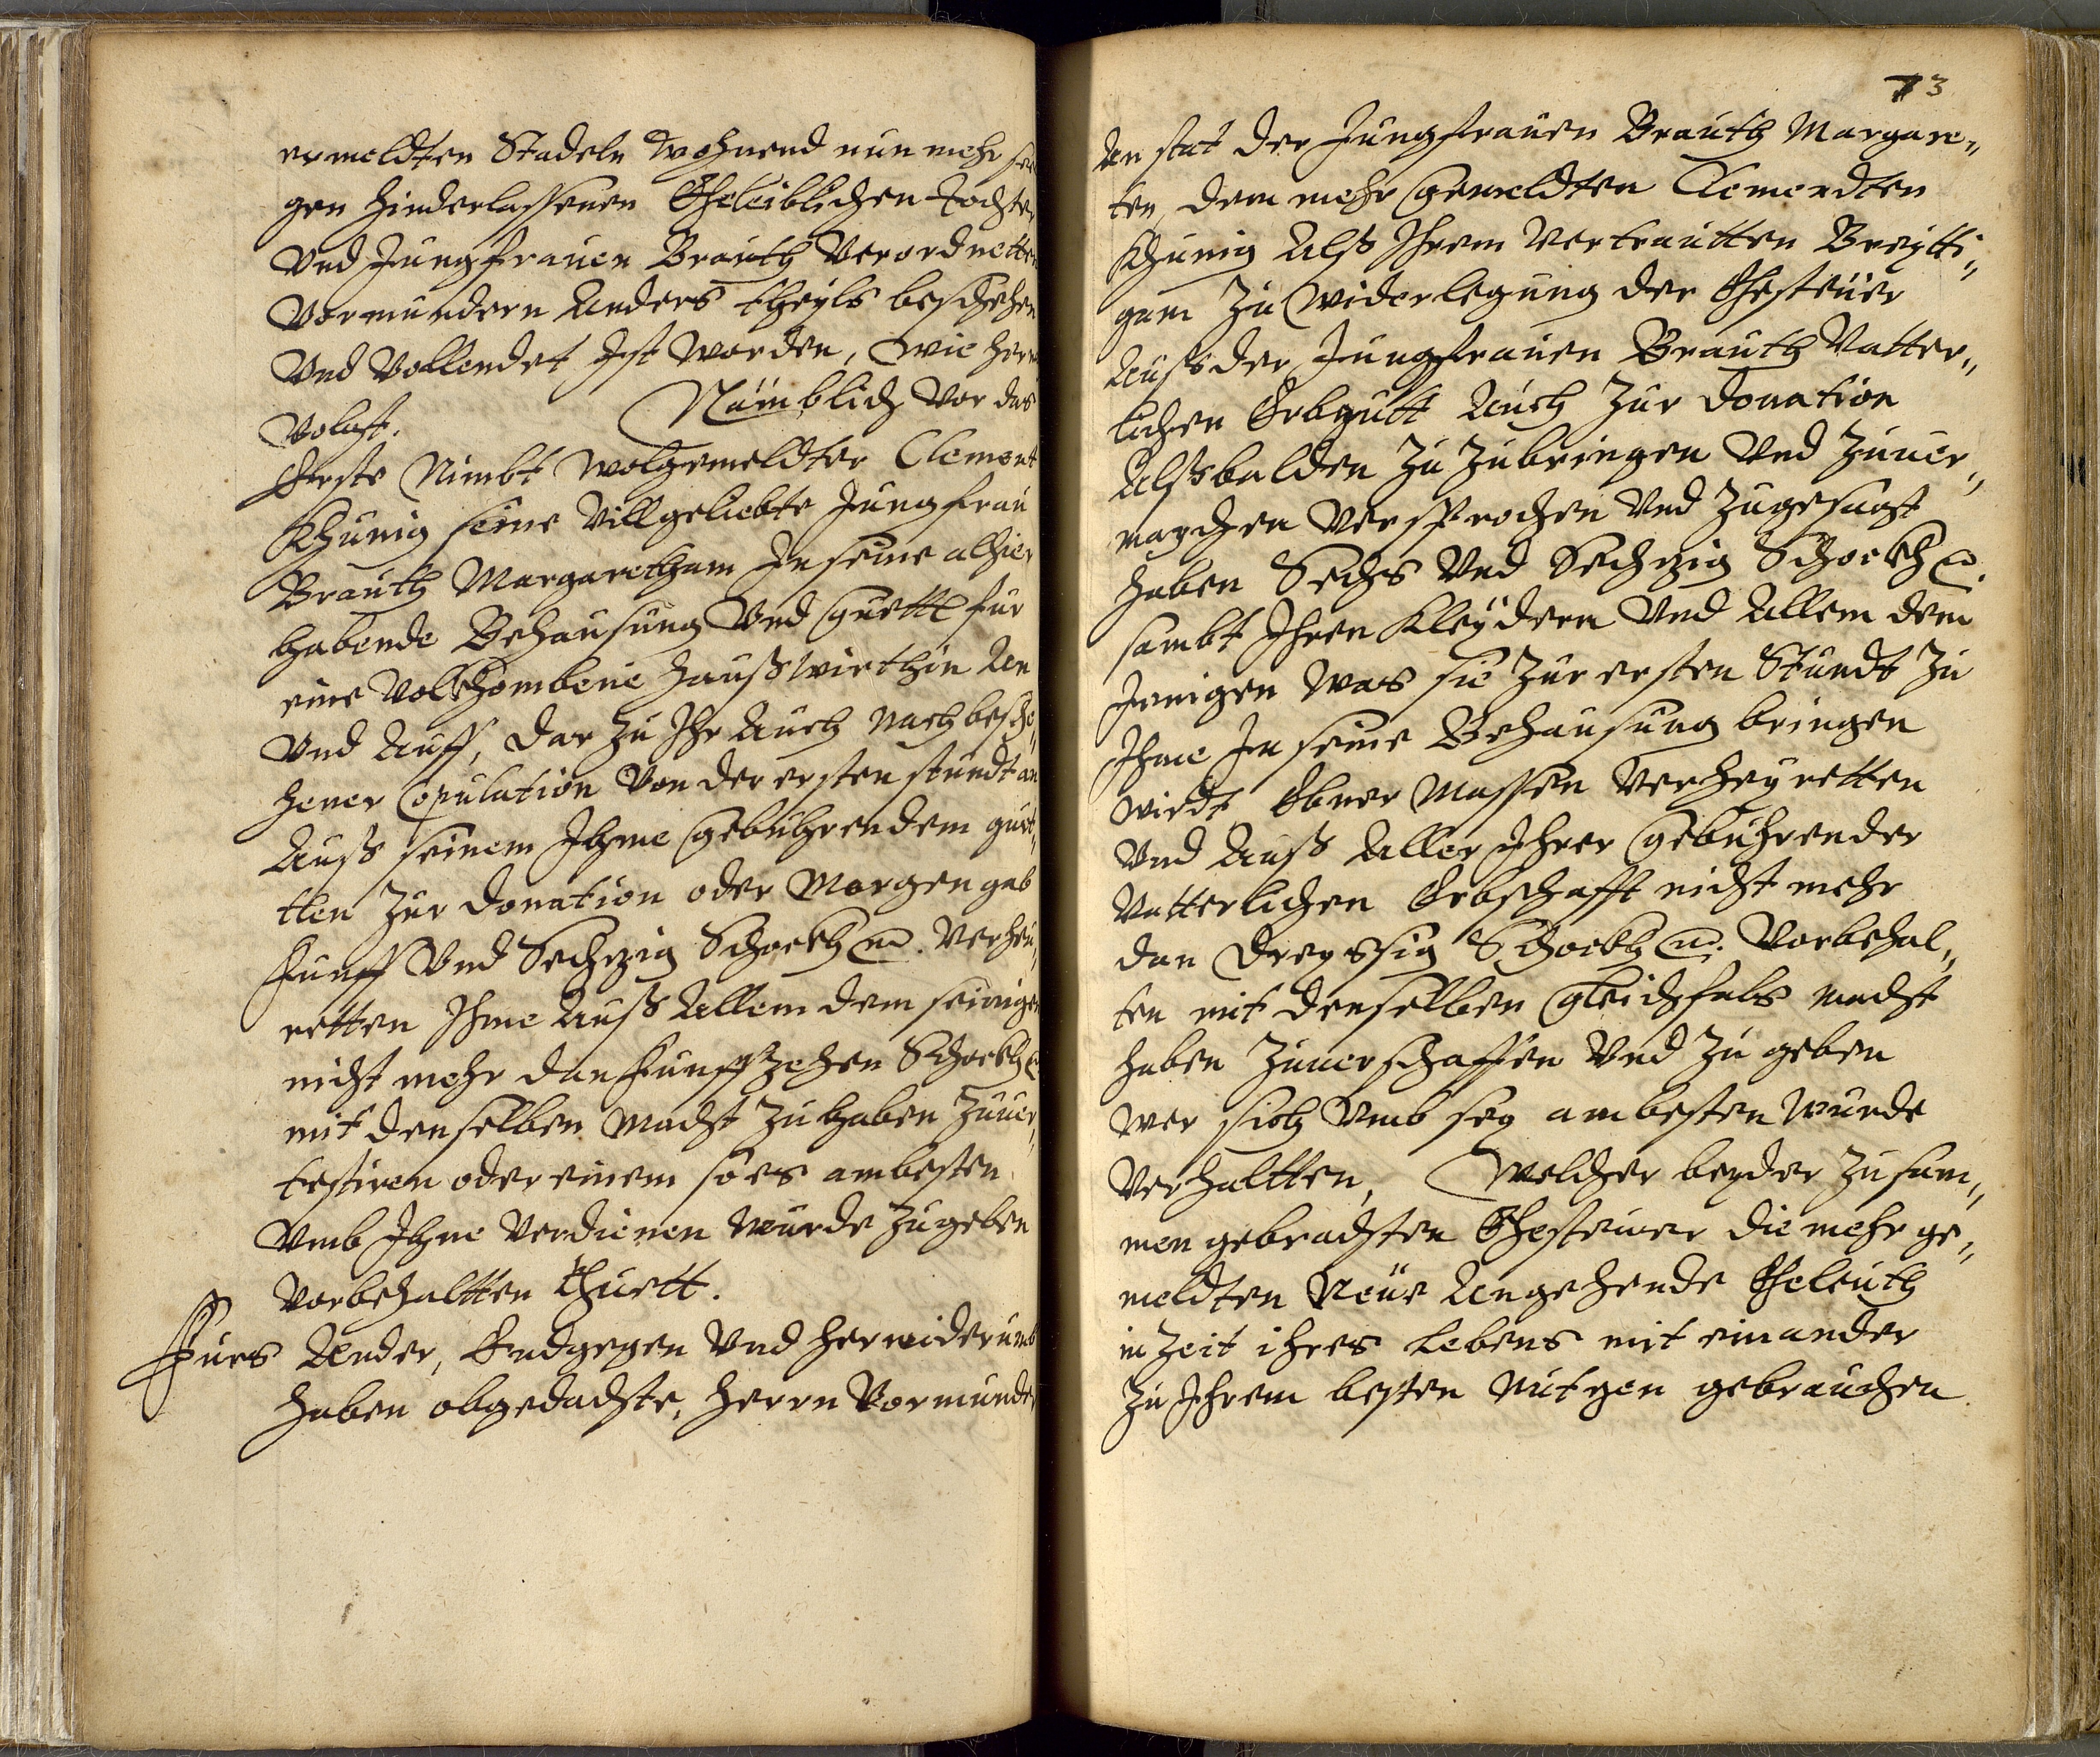 ermeldten Stadeln wohnend nun mehr see
gen hinderlassenen Eheleiblichen Tochter
Vnd Jungfrauen Brauth Verordnetten
Vormundern Anders theyls beschehen
Vnd Vollendet Ist worden, wie her
Volgt. Nämblich Vor das
Erste Nimbt wolgemeldter Clement
Khunig seine Villgeliebte Jungfrau
Brauth Margaretham In seine alhier
habende Behausung Vnd guettl für
eine Volkhombene Haußwirthin An
Vnd Auff, dar zu Ihr Auch Nach besche„
hener Copulation Von der ersten stundt an
Auß seinem Ihme gebührendem guet„
tlen Zur donation oder Morgengab
Funff Vnd Sechzig Schockh m. Verheu„
retten Ihme Auß Allem dem seinigen
nicht mehr dan Funffzehen Schockh m
mit denselben Macht zu haben zuuer„
testiren oder einem so es ambesten
Vmb Ihme Verdienen wurde zugeben
Vorbehaltten thuett.
Fürs Ander, Endgegen Vnd herwiderumb
haben obgedachte, herrn Vormunder
73
An stat der Jungfrauen Brauth Margare„
ten, dem mehr gemeldten Clemendten
Khunig Alß Ihrem Vertrautten Breytti„
gam Zu widerlegung der Ehesteüer
Auß der Jungfrauen Brauth Vatter„
lichen Erbgutt Auch Zur donation
Alßbalden Zu Zubringen Vnd Zuuer„
machen Versprochen Vnd Zugesagt
haben Sechs Vnd Sechzig Schockh m.
sambt Ihren Kleydern Vnd Allem dem
Jenigen was sie Zur ersten Stundt Zu
Ihme In seine Behausung bringen
wirdt Ebner Massen Verheyretten
Vnd Auß Aller Ihrer gebührender
Vatterlichen Erbschafft nicht mehr
dan Dreyssig Schockh m: Vorbehal„
ten mit denselben gleichfals macht
haben Zuuerschaffen Vnd Zu geben
wer sich Vmb sey ambesten wurde
Verhaltten, Welcher beyder Zusam„
men gebrachten Ehesteuer die mehr ge„
meldten Neue Angehende Eheleuth
in Zeit ihres Lebens mit einander
Zu Ihrem besten Nutzen gebrauchen